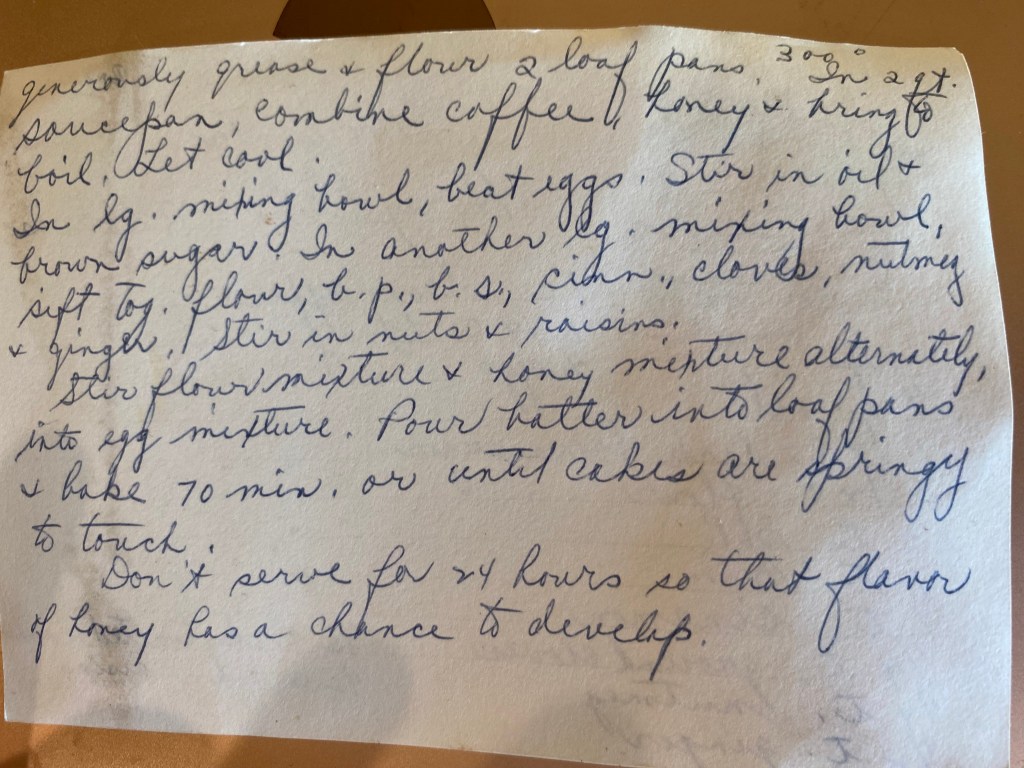 generously grease & flour 2 loaf pans. 300° In 2 qt.
saucepan, combine coffee, honey & bring to
boil. Let cool.
In lg. mixing bowl, beat eggs. Stir in oil &
brown sugar. In another lg. mixing bowl,
sift tog. flour, b.p., b.s., cinn., cloves, nutmeg
& ginger. Stir in nuts & raisins.
Stir flour mixture & honey mixture alternately,
into egg mixture. Pour batter into loaf pans
& bake 70 min. or until cakes are springy
to touch.
Don't serve for 24 hours so that flavor
of honey has a chance to develop.